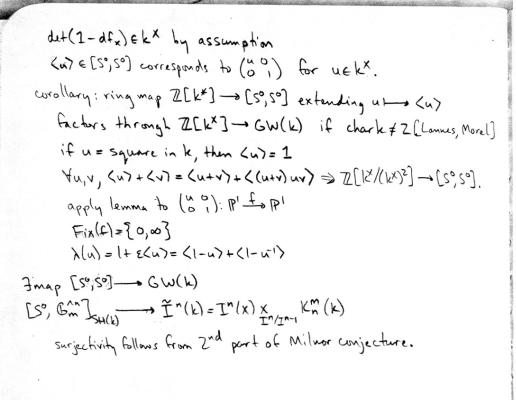 det(1-df_x) ∈ k^× by assumption
<u> ∈ [S⁰,S⁰] corresponds to (u 0 / 0 1) for u∈k^×.
corollary: ring map ℤ[k^×] → [S⁰,S⁰] extending u ↦ <u>
factors through ℤ[k^×] → GW(k) if char k ≠ 2 [Lannes, Morel]
if u = square in k, then <u> = 1
∀u,v, <u>+<v> = <u+v>+<(u+v)uv> ⇒ ℤ[k^×/(k^×)²] → [S⁰,S⁰].
apply lemma to (u 0 / 0 1): ℙ¹ –f→ ℙ¹
Fix(f) = {0,∞}
λ(u) = 1+ε<u> = <1-u>+<1-u⁻¹>
∃map [S⁰,S⁰] → GW(k)
[S⁰, 𝔾_m^{∧n}]_{SH(k)} → Ĩⁿ(k) = Iⁿ(x) ×_{Iⁿ/Iⁿ⁻¹} K_n^m(k)
surjectivity follows from 2nd part of Milnor conjecture.